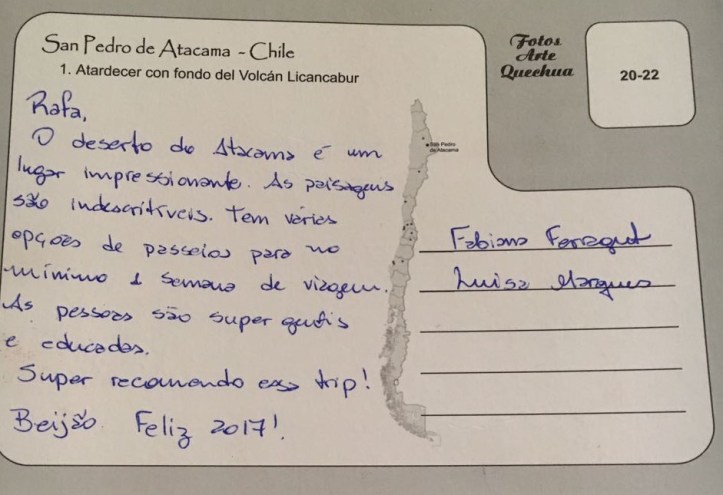 San Pedro de Atacama - Chile
1. Atardecer con fondo del Volcán Licancabur
Rafa,
O deserto do Atacama é um
lugar impressionante. As paisagens
são indescritíveis. Tem várias
opções de passeios para no
mínimo 1 semana de viagem.
As pessoas são super gentis
e educadas.
Super recomendo essa trip!
Beijão Feliz 2017!
San Pedro
de Atacama
Fotos
Arte
Quechua
20-22
Fabiana Ferragut
Luisa Marques